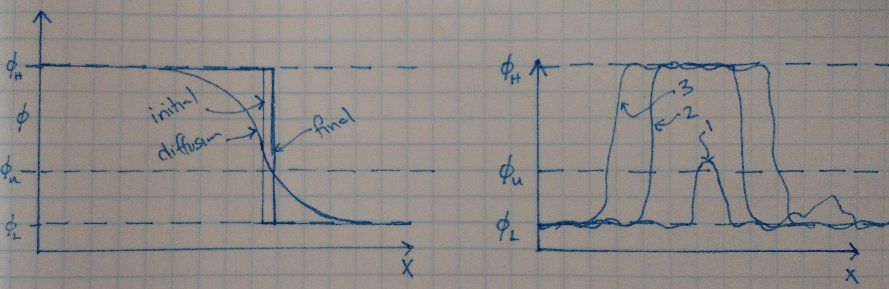 ϕH
ϕ
ϕu
ϕL
initial
diffusion
final
x
ϕH
ϕu
ϕL
3
2
1
x